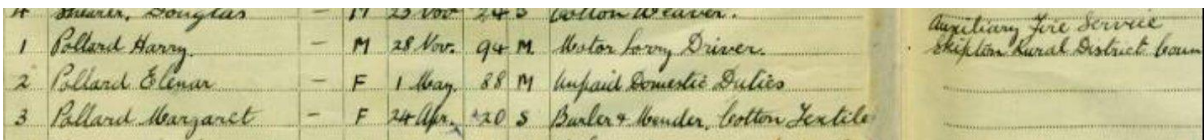 4 Shearer, Douglas – M 23 Nov 24 S Cotton Weaver.
Auxiliary Fire Service
1 Pollard Harry. – M 28 Nov. 94 M Motor Lorry Driver. Skipton Rural District Coun
2 Pollard Elenar – F 1 May. 88 M Unpaid Domestic Duties
3 Pollard Margaret – F 24 Apr. 20 S Burler & Mender, Cotton Textile